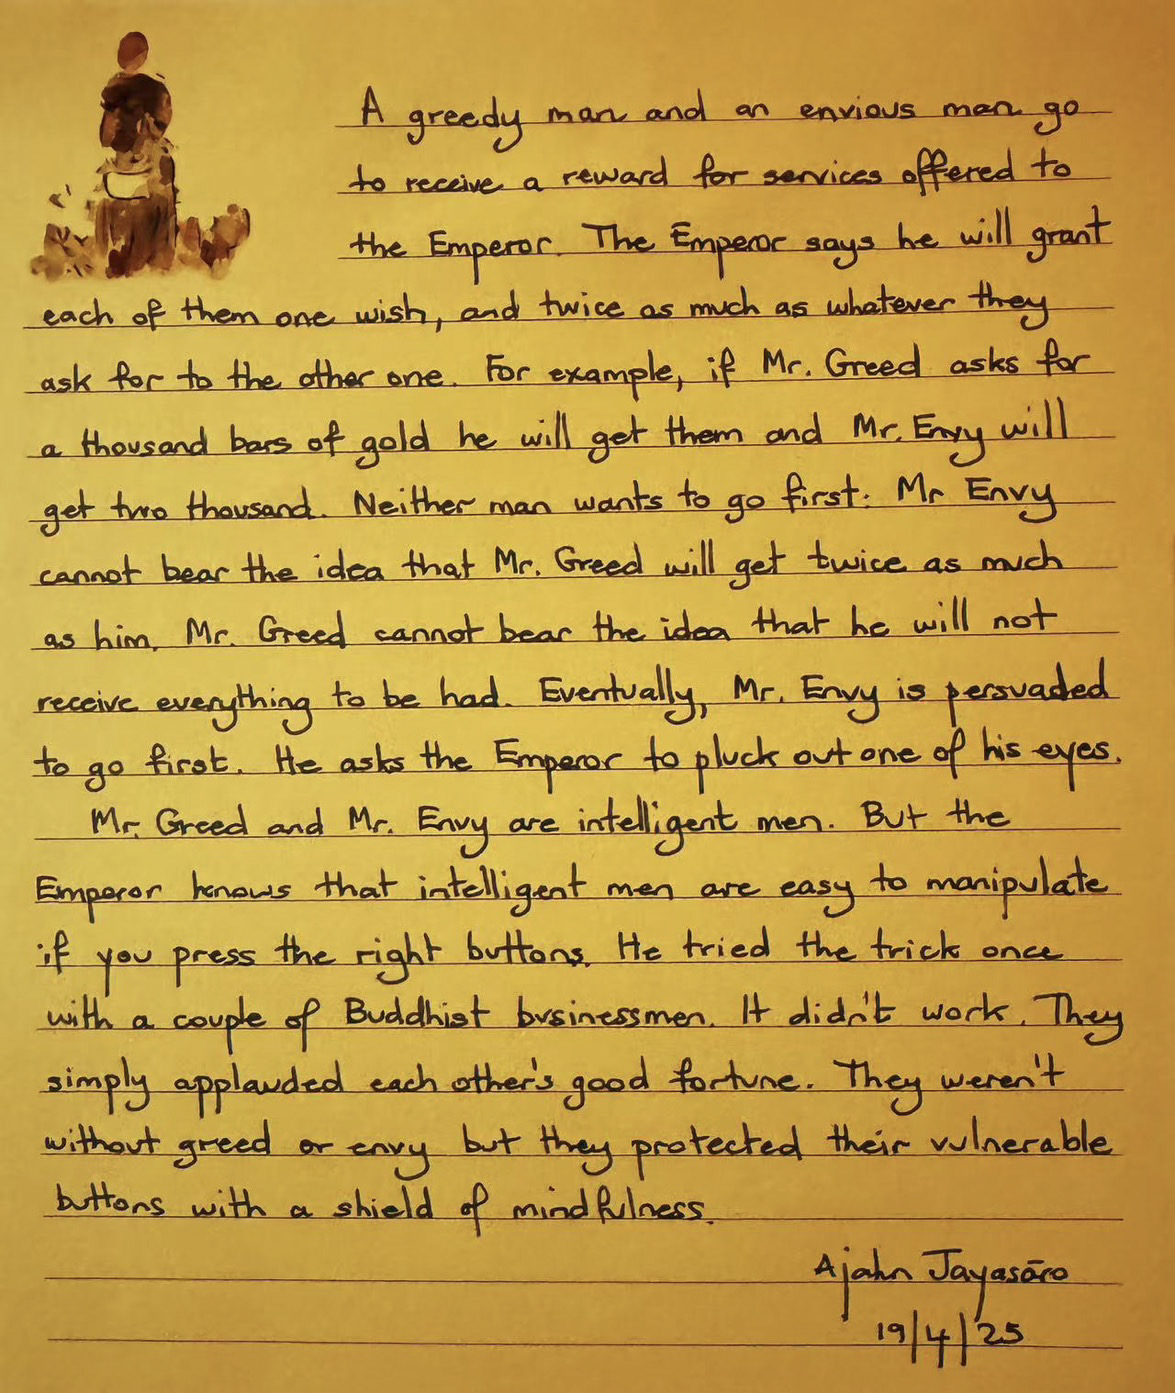 A greedy man and an envious man go
to receive a reward for services offered to
the Emperor. The Emperor says he will grant
each of them one wish, and twice as much as whatever they
ask for to the other one. For example, if Mr. Greed asks for
a thousand bars of gold he will get them and Mr. Envy will
get two thousand. Neither man wants to go first. Mr Envy
cannot bear the idea that Mr. Greed will get twice as much
as him. Mr. Greed cannot bear the idea that he will not
receive everything to be had. Eventually, Mr. Envy is persuaded
to go first. He asks the Emperor to pluck out one of his eyes.
Mr. Greed and Mr. Envy are intelligent men. But the
Emperor knows that intelligent men are easy to manipulate
if you press the right buttons. He tried the trick once
with a couple of Buddhist businessmen. It didn't work. They
simply applauded each other's good fortune. They weren't
without greed or envy but they protected their vulnerable
buttons with a shield of mindfulness.
Ajahn Jayasāro
19/4/25